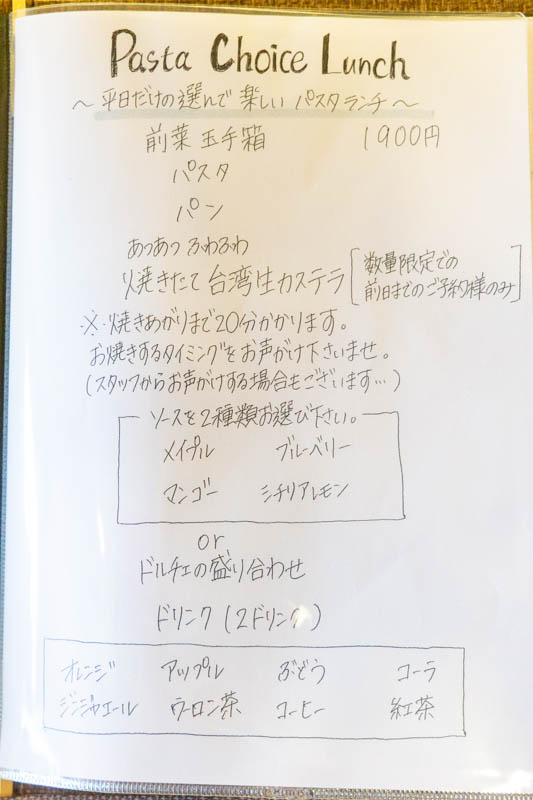 Pasta Choice Lunch
～平日だけの選んで楽しいパスタランチ～
前菜玉手箱 1900円
パスタ
パン
あつあつ ふわふわ
焼きたて 台湾生カステラ [数量限定での
前日までのご予約様のみ]
※焼きあがりまで20分かかります。
お焼きするタイミングをお声がけ下さいませ。
(スタッフからお声がけする場合もございます…)
ソースを2種類お選び下さい。
メイプル ブルーベリー
マンゴー シチリアレモン
or
ドルチェの盛り合わせ
ドリンク(2ドリンク)
オレンジ アップル ぶどう コーラ
ジンジャエール ウーロン茶 コーヒー 紅茶